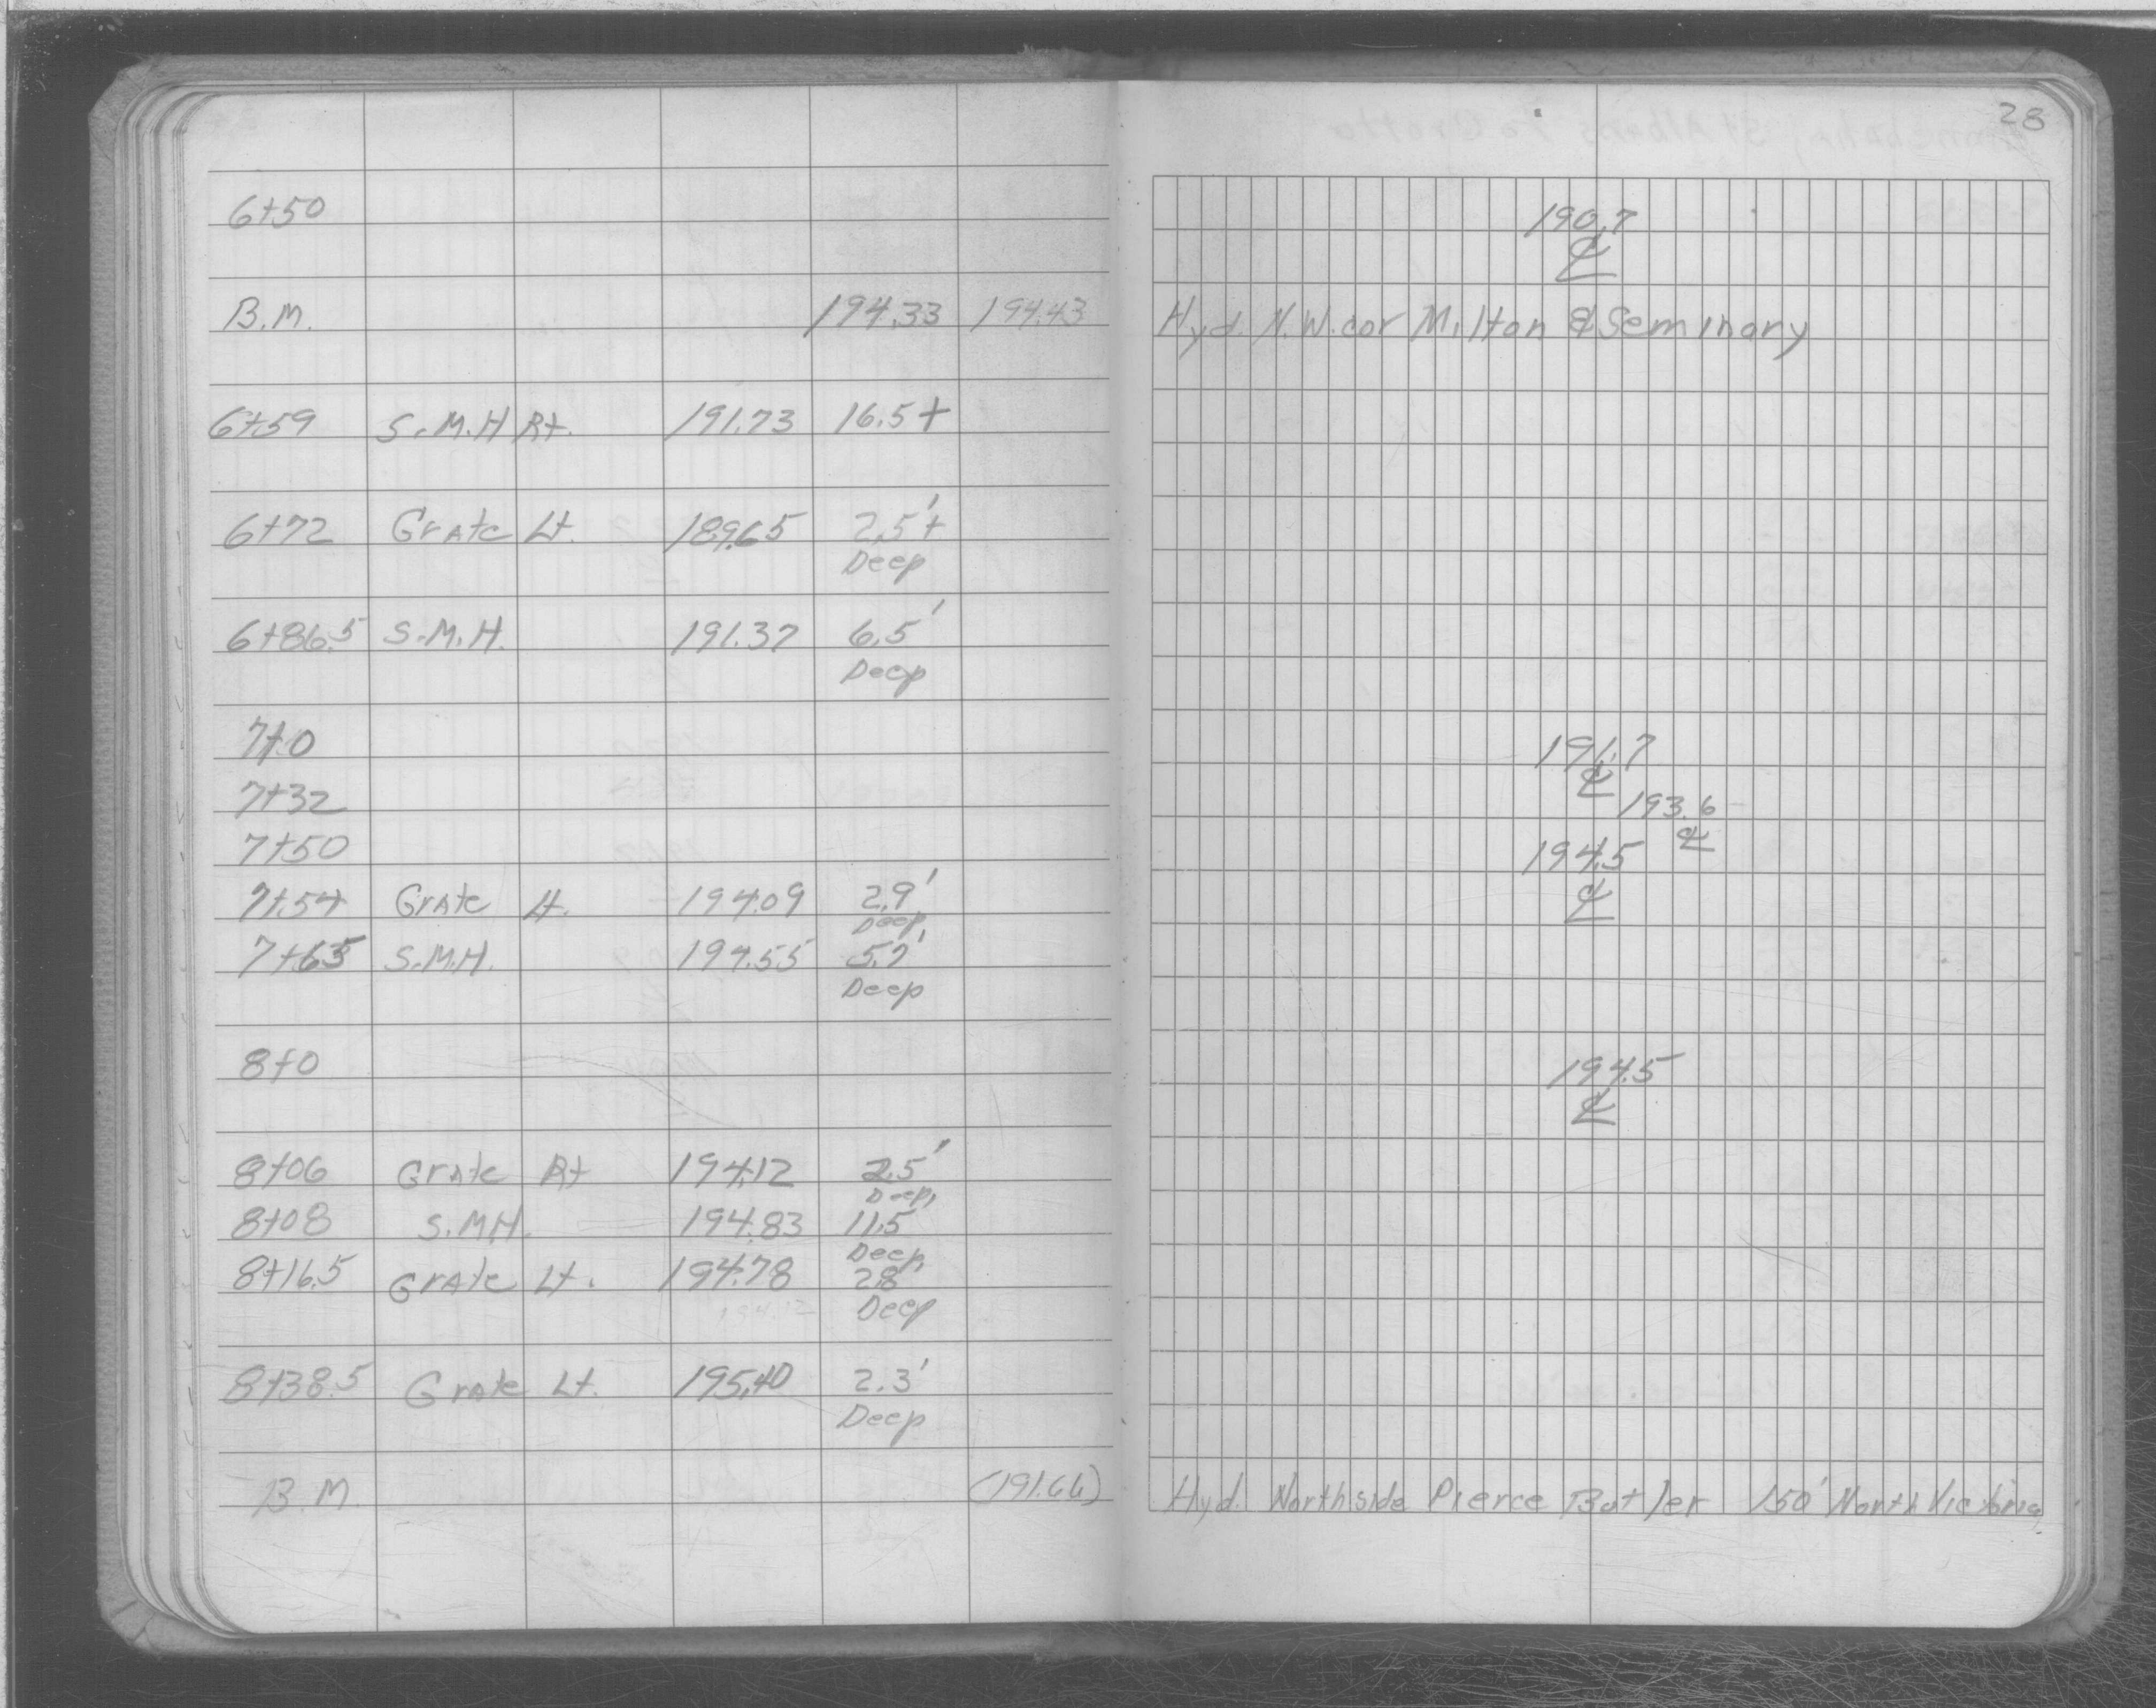 28
6+50 190.7
℄
B.M. 194.33 194.43 Hyd. N.W. cor Milton & Seminary
6+59 S.M.H Rt. 191.73 16.5+
6+72 Grate Lt. 189.65 2.5'+
Deep
6+86.5 S.M.H. 191.37 6.5'
Deep
7+0 191.7
℄
7+32 193.6
℄
7+50 194.5
℄
7+54 Grate Lt. 194.09 2.9'
Deep
7+65 S.M.H. 194.55 5.7'
Deep
8+0 194.5
℄
8+06 Grate Rt 194.12 2.5'
Deep
8+08 S.M.H. 194.83 11.5'
Deep
8+16.5 Grate Lt. 194.78 2.8'
194.12 Deep
8+38.5 Grate Lt. 195.40 2.3'
Deep
B.M. (191.66) Hyd. Northside Pierce Butler 150' North Victoria